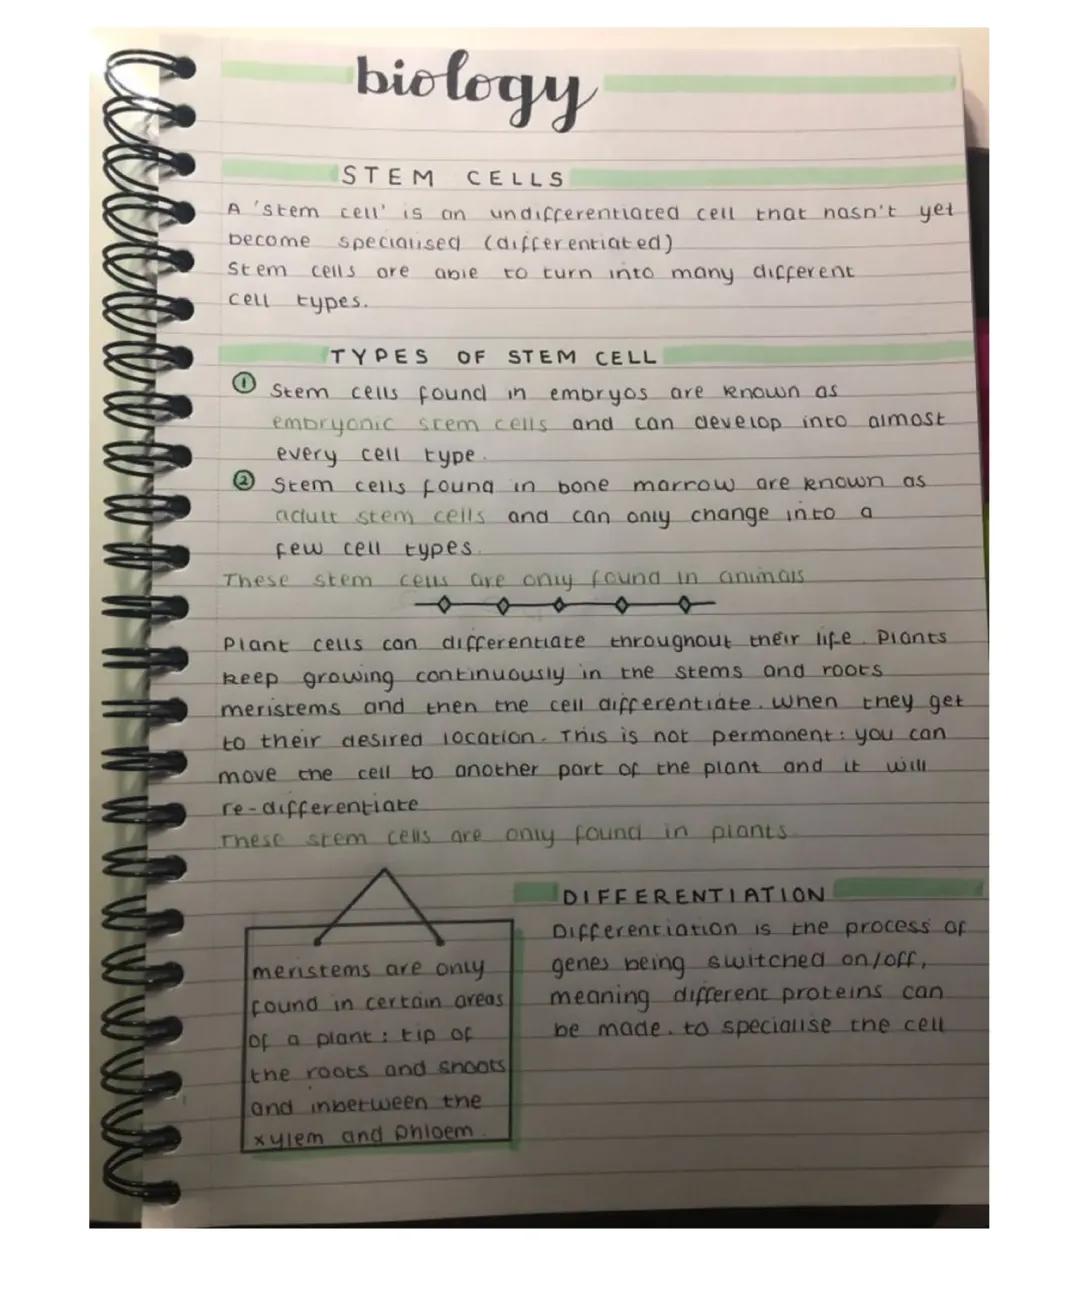 biology
STEM CELLS
A 'stem cell' is an undifferentiated cell that hasn't yet
become specialised (differentiated)
Stem cells are able to turn into many different
cell types.
TYPES OF STEM CELL
① Stem cells found in embryos are known as
embryonic stem cells and can develop into almost
every cell type.
② Stem cells found in bone marrow are known as
adult stem cells and can only change into a
few cell types.
These stem cells are only found in animals
Plant cells can differentiate throughout their life. Plants
keep growing continuously in the stems and roots
meristems and then the cell differentiate. when they get
to their desired location. This is not permanent: you can
move the cell to another part of the plant and it will
re-differentiate
These stem cells are only found in plants.
meristems are only
found in certain areas
of a plant: tip of
the roots and shoots
and inbetween the
xylem and phloem.
DIFFERENTIATION
Differentiation is the process of
genes being switched on/off,
meaning different proteins can
be made. to specialise the cell